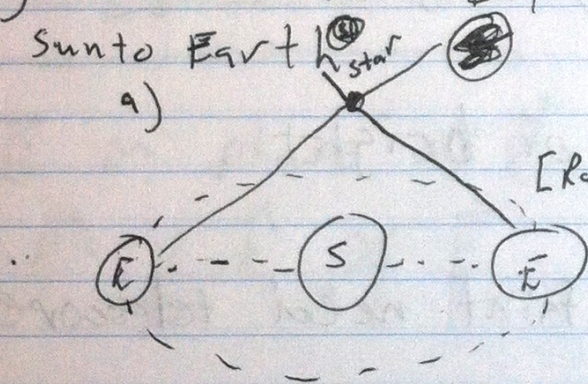 Sun to Earth
star
a)
[Ro
E
S
E